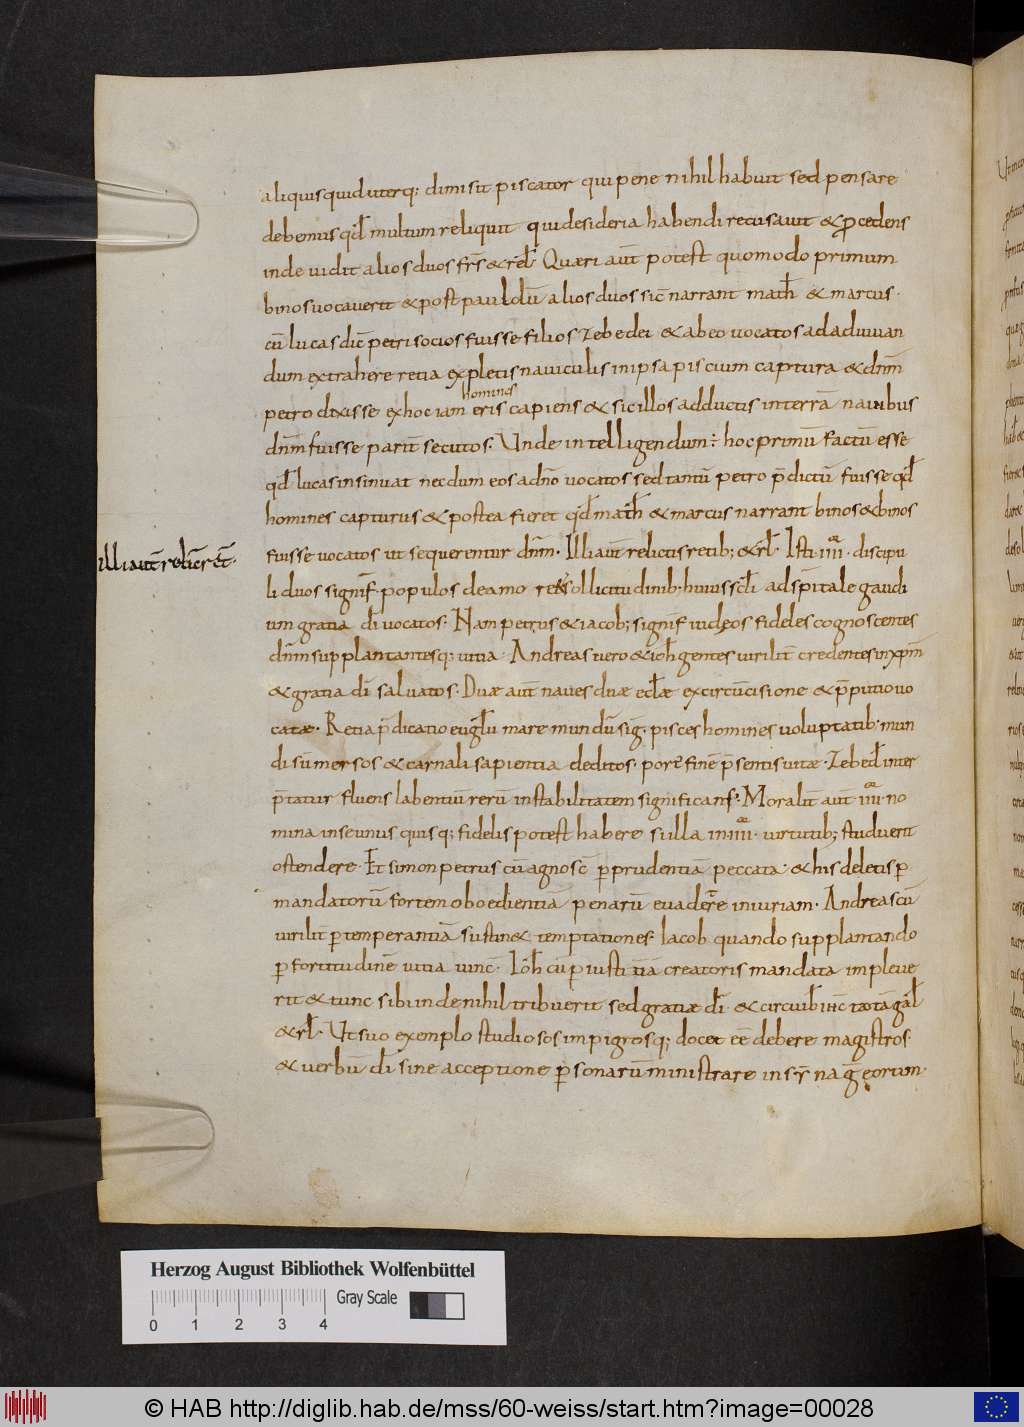 aliquis quid uterq; dimisit piscator qui pene nihil habuit sed pensare
debemus qđ multum reliquit qui desideria habendi recusauit & ꝓcedens
inde uidit alios duos frs̄ & rel̄. Quæri aut̄ potest quomodo primum
binos uocauerit & post paulolū alios duos sic̄ narrant math̄ & marcus.
cū lucas dic̄ petri socios fuisse filios zebedei & ab eo uocatos ad adiuuan
dum extrahere retia expletis nauiculis in ipsa piscium captura & dnm̄
homines
petro dixisse ex hoc iam eris capiens & sic illos adductis in terrā nauibus
dnm̄ fuisse parit̄ secutos. Unde intelligendum ÷ hoc primū factū esse
qđ lucas insinuat necdum eos a dn̄o uocatos sed tantū petro p̄dictū fuisse qđ
homines capturus & postea fieret qđ math̄ & marcus narrant binos & binos
illi aut̄ relic̄ r&̄.
fuisse uocatos ut sequerentur dnm̄. Illi aut̄ relictis retib; & rl̄. Isti IIIIor. discipu
li duos signif̄. populos de amore & sollicitudinib; huius scl̄i ad spitale gaudi
um gratia dī uocatos. Nam petrus & iacob; signif̄ iudęos fideles cognoscentes
dnm̄ supplantantesq; uitia. Andreas uero & ioh̄ gentes uirilit̄ credentes in xpm̄
& gratia dī saluatos. Duæ aut̄ naues duæ eccl̄æ ex circūcisione & p̄putio uo
catæ. Retia p̄dicatio eugl̄ii mare mundū sig̃. pisces homines uoluptatib; mun
di sūmersos & carnali sapientia deditos. porr̄ finē p̄sentis uitæ. Zebed̄ inter
p̄tatur fluens labentiū rerū instabilitatem significans. Moralit̄ aut̄ IIIIor. no
mina in se unus quisq; fidelis potest habere si illa in IIIIor. uirtutib; studuerit
ostendere. Et simon petrus cū agnosc̄ ꝑ prudentiā peccata & his deletis ꝑ
mandatorū fortem oboedientiā penarū euadere iniuriam. Andreas cū
uirilit̄ ꝑ temperantiā sustin& temptationes. Iacob quando supplantando
ꝑ fortitudinē uitia uinc̄. Ioh̄ cū ꝑ iustitiā creatoris mandata impleue
rit & tunc sibi inde nihil tribuerit sed gratiæ dī. & circuib̄ ihc̄ totā gal̄
& rl̄. Ut suo exemplo studiosos impigrosq; docet eē debere magistros.
& uerbū dī sine acceptione ꝑsonarū ministrare in synag̃ eorum.
Herzog August Bibliothek Wolfenbüttel
Gray Scale
0 1 2 3 4
© HAB http://diglib.hab.de/mss/60-weiss/start.htm?image=00028